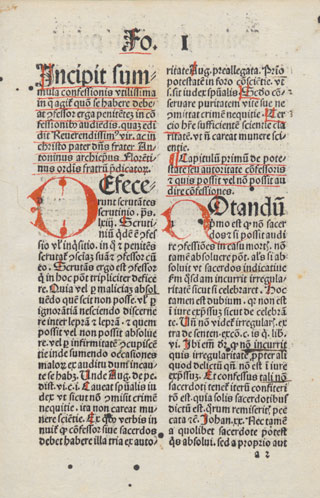 Fo. I
Incipit sum-
mula confessionis utilissima
in q̄ agit̄ quō se habere debe-
at ꝓfessor erga penitētē; in cō
fessionibꝰ audiēdis. quaz edi
dit Reuerendissimꝰ vir. ac in
christo pater dn̄s frater An-
toninus archiepūs Florēti-
nus ordīs fratrū p̄dicator.
Defece
runt scrutātes
scrutinio. ps.
lxiij. Scruti-
niū q̄dē ē ꝓfes
sio vl̓ inq̄sitio. in q̄ ⁊ penitēs
scrutat̄ ꝓsciaz suā ⁊ ꝓfessor cū
eo. Scrutās ergo est ꝓfessor
q̄ in hoc pōt tripliciter defice
re. Quia vel ꝑ maliciā absol
uēdo quē scit non posse. vl̓ ꝑ
ignorātiā nesciendo discerne
re inter leprā ⁊ leprā. ⁊ quem
possit vel non possit absolue
re. vel ꝑ infirmitatē ꝯcupiscē
tie inde sumendo occasiones
malorꝫ ex auditu dum incau-
te se habꝫ. Unde Aug. de pe.
dist. vi. c. i. Caueat sp̄ualis iu
dex vt sicut nō ꝯmisit crimē
nequitie. ita non careat mu-
nere sciētie. Ex qbꝰ verbis in
nuit̄ ꝙ ꝯfessor siue sacerdos
debet habere illa tria ex auto-
ritate Aug. preallegata. Prīo
potestatē in foro ꝯsciētie. vt
s. sit iudex sp̄ualis. Scdo cō-
seruare puritatem vite sue ne
ꝯmittat crimē neq̄tie. Ter
cio hr̄e sufficientē scientie cla
ritatē. vt nō careat munere sci
entie.
Capitulū primū de pote-
state seu autoritate cōfessoris
⁊ quis possit vel nō possit au
dire cōfessiones.
Notandū
pmo est ꝙ nō sacer
dos ⁊ si possit audi
re ꝓfessiōes ī casu mortꝭ. nō
tamē absoluere pōt. als̄ si ab
soluit vt sacerdos indicatiue
fm q̄sdā am incurrit irregula-
ritatē sicut si celebraret. Hoc
tamen est dubium. qꝛ non est
ī iure exp̄ssuꝫ sicut de celebrā
te. Uñ nō videt̄ irregulaꝝ. et
tra de senten. exco. c. is q̄. lib.
vi. Ibi em̄ dꝛ ꝙ nō incurrit
quis irregularitatē ꝓpter ali
quod delictū qn̄ nō est ī iure
exp̄ssuꝫ. Et confessus tali nō
sacerdoti tenet̄ iterū confiteri
rō est quia solis sacerdotibus
dictū est. Qrum remiseritꝭ pec
cata ⁊ē. Johan. xx. Nec tamē
a quolibet sacerdote potest
qs absolui. sed a proprio aut
a 2